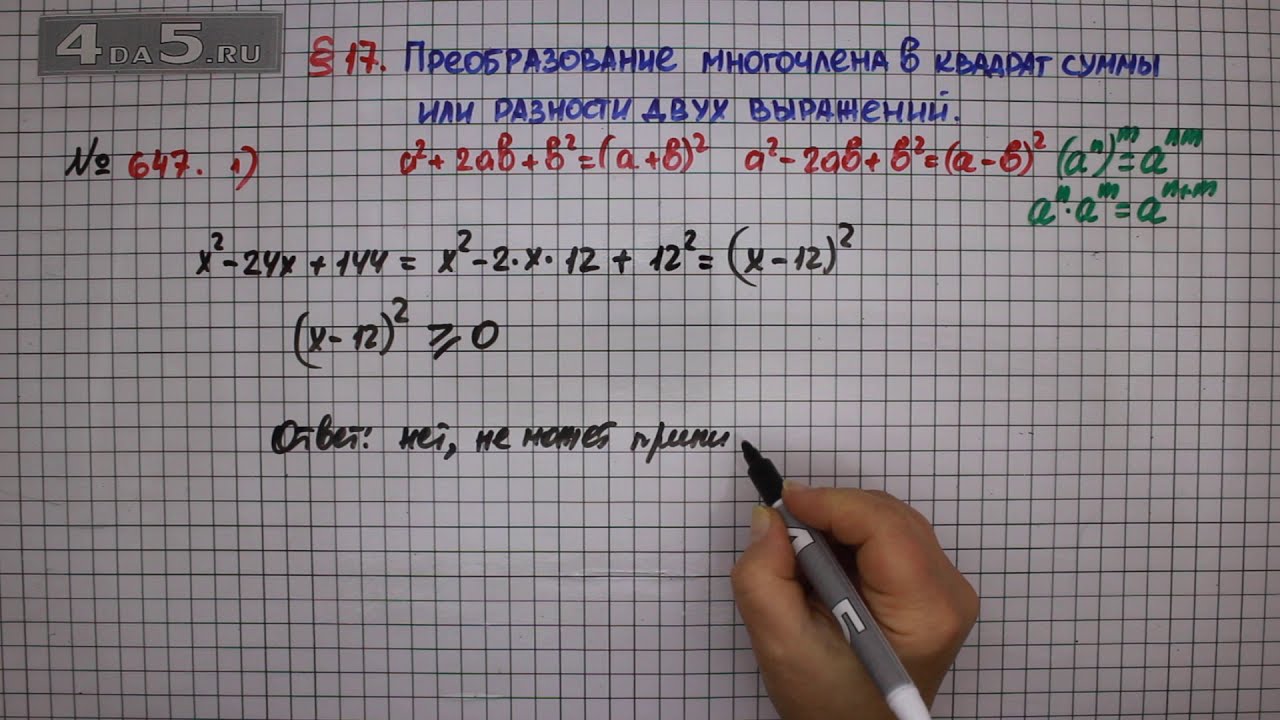 4DA5.RU
§ 17. Преобразование многочлена в квадрат суммы
или разности двух выражений.
№ 647. 1) a²+2ab+b²=(a+b)² a²-2ab+b²=(a-b)² (aⁿ)ᵐ=aⁿᵐ
aⁿ·aᵐ=aⁿ⁺ᵐ
x²-24x+144= x²-2·x·12+12²=(x-12)²
(x-12)² ⩾ 0
Ответ: нет, не может прини